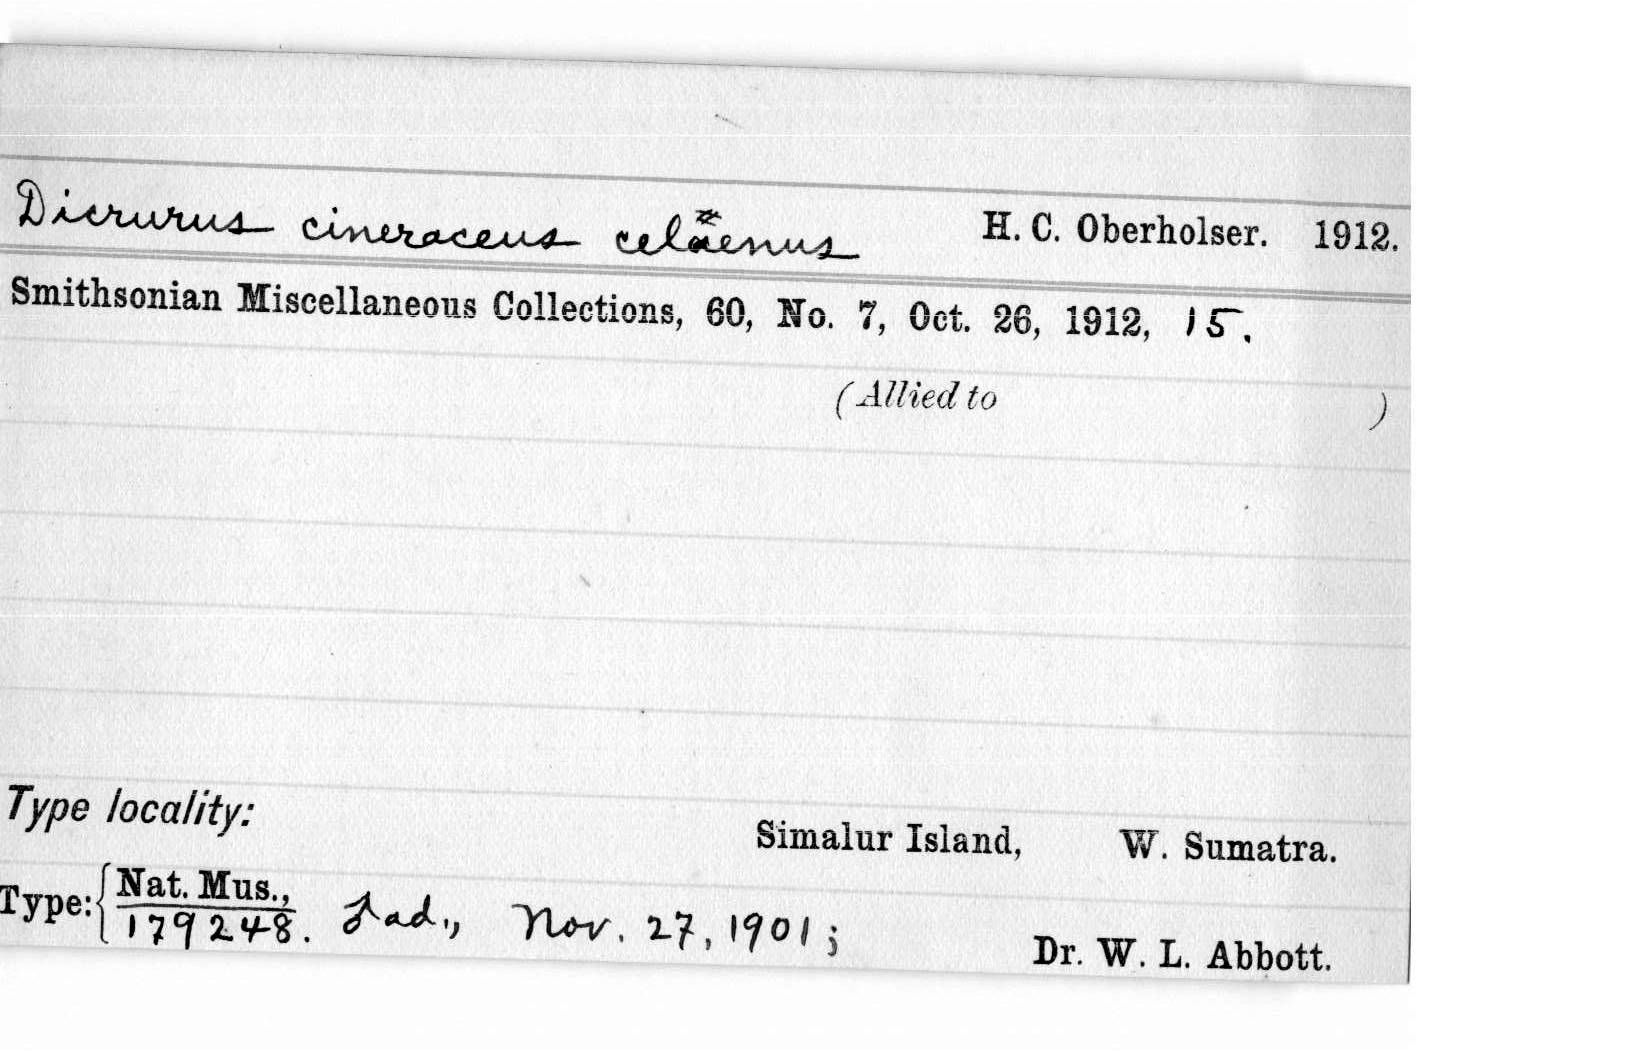 Dicrurus cineraceus celäenus H. C. Oberholser. 1912.
Smithsonian Miscellaneous Collections, 60, No. 7, Oct. 26, 1912, 15.
(Allied to )
Type locality:
Simalur Island, W. Sumatra.
Type: { Nat. Mus.,
179248. ♂ ad., Nov. 27, 1901; Dr. W. L. Abbott.